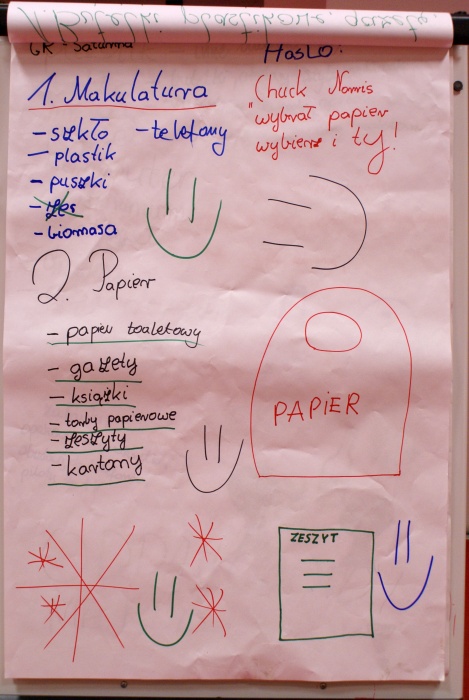 1. Butelki plastikowe, gazety.
GK - Saturna
Hasło:
1. Makulatura
- szkło - telefony
- plastik
- puszki
- biomasa
Chuck Norris
"wybrał papier
wybierz i ty!
2. Papier
- papier toaletowy
- gazety
- książki
- torby papierowe
- zeszyty
- kartony
PAPiER
ZESZYT